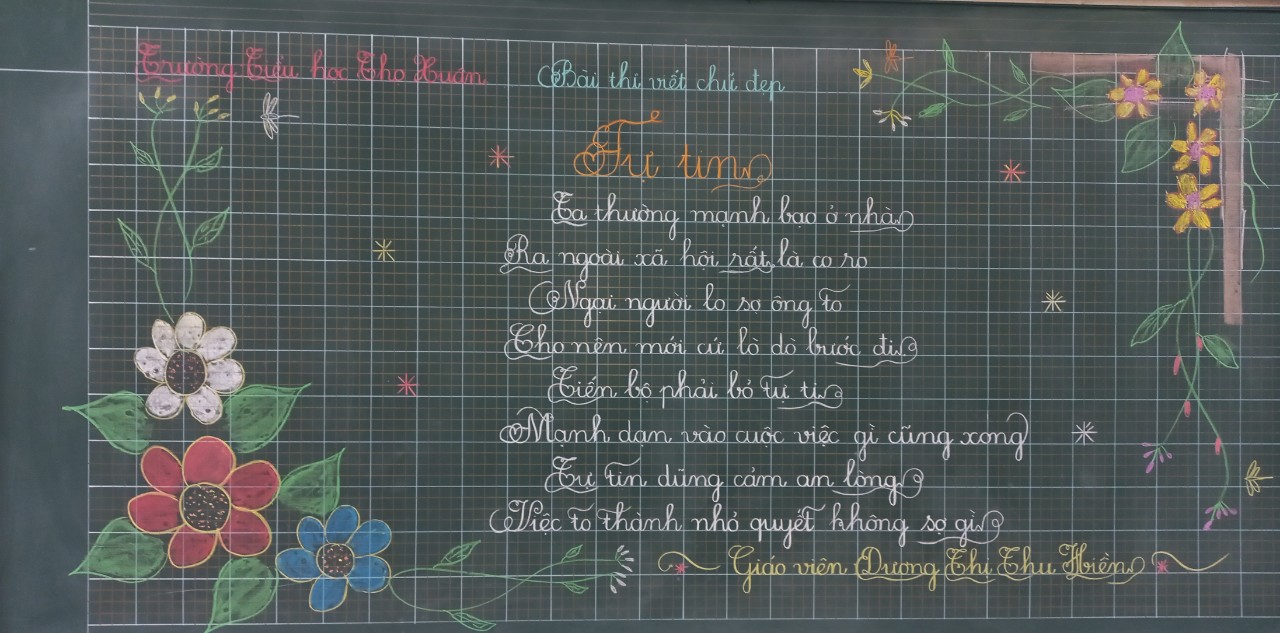 Trường Tiểu học Thọ Xuân
Bài thi viết chữ đẹp
Tự tin
Ta thường mạnh bạo ở nhà
Ra ngoài xã hội rất là co ro
Ngại người lo sợ ông to
Cho nên mới cứ lò dò bước đi
Tiến bộ phải bỏ tự ti
Mạnh dạn vào cuộc việc gì cũng xong
Tự tin dũng cảm an lòng
Việc to thành nhỏ quyết không sợ gì
Giáo viên Dương Thị Thu Hiền